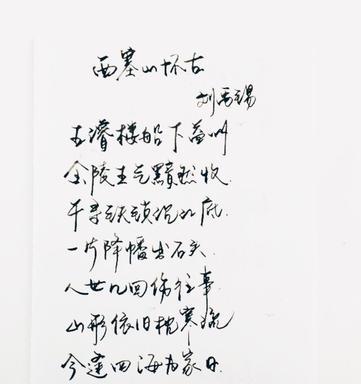 西塞山怀古
刘禹锡
王濬楼船下益州
金陵王气黯然收
千寻铁锁沉江底
一片降幡出石头
人世几回伤往事
山形依旧枕寒流
今逢四海为家日